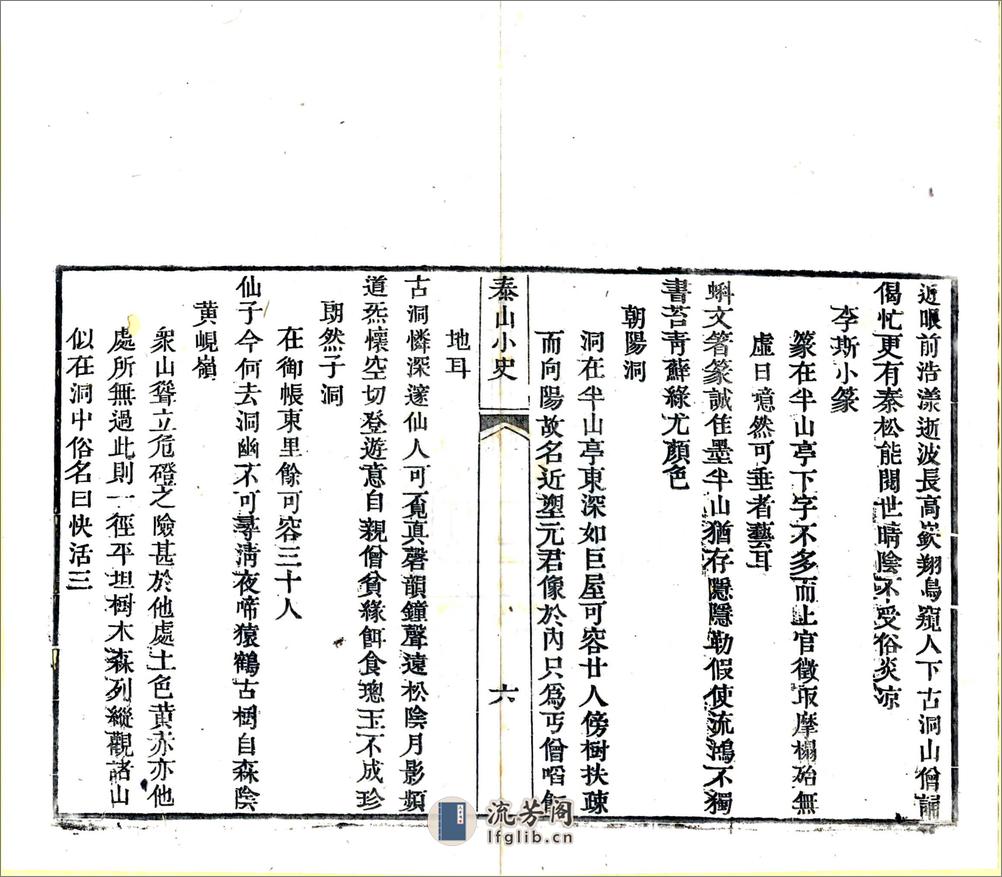 近㬉前浩漾逝波長高嶔翔鳥窺人下古洞山僧誦
偈忙更有秦松能閱世晴陰不受俗炎凉
李斯小篆
篆在半山亭下字不多而止官徵取摩榻殆無
虛日噫然可垂者藝耳
蝌文箸篆誠佳墨半山猶存隱隱勒假使流鴻不獨
書苔青蘚綠尤顔色
朝陽洞
洞在半山亭東深如巨屋可容廿人傍樹扶疎
而向陽故名近塑元君像於內只爲丐僧啗飯
泰山小史
六
地耳
古洞憐深邃仙人可覓真磬韻鐘聲遠松陰月影頻
道炁懷空切登遊意自親僧貧緣餌食璁玉不成珍
朗然子洞
在御帳東里餘可容三十人
仙子今何去洞幽不可尋清夜啼猿鶴古樹自森陰
黄峴嶺
衆山聳立危磴之險甚於他處土色黄赤亦他
處所無過此則一徑平坦樹木森列縱觀諸山
似在洞中俗名曰快活三
流芳阁
lfglib.cn